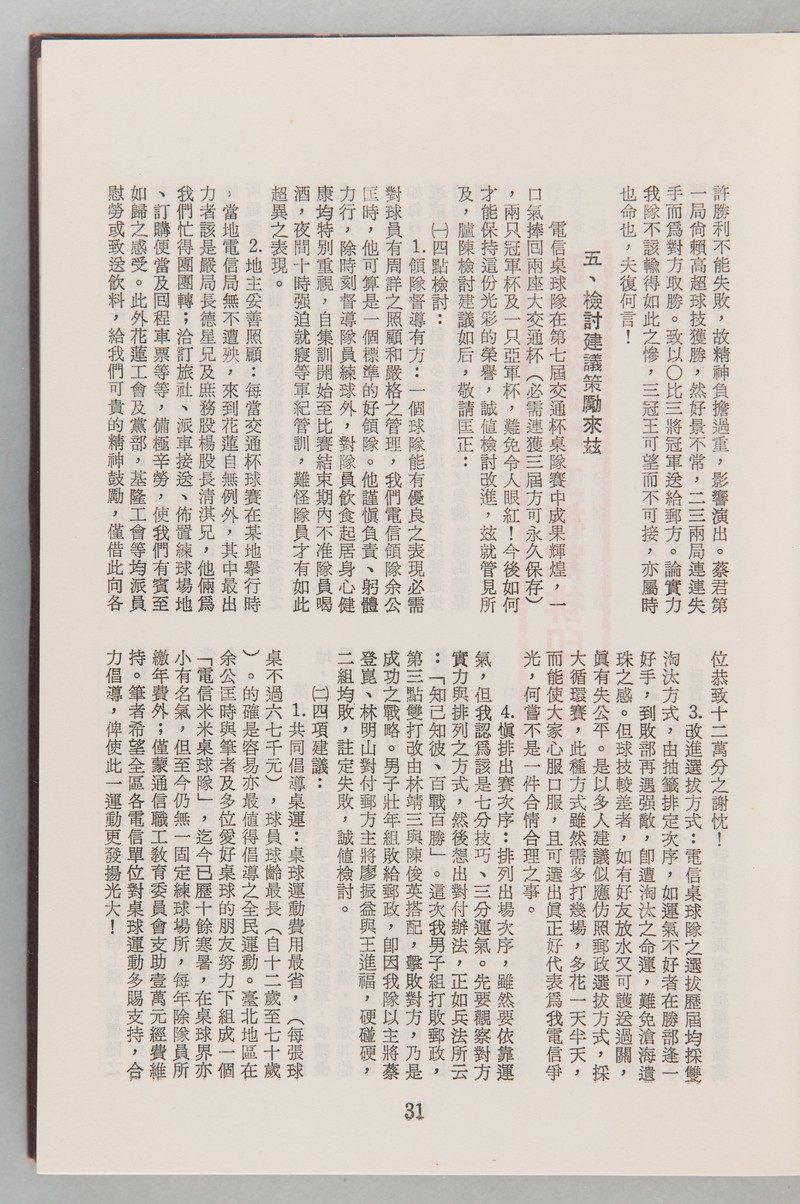 許勝利不能失敗，故精神負擔過重，影響演出。蔡君第
一局尙賴高超球技獲勝，然好景不常，二三兩局連連失
手而爲對方取勝。致以〇比三將冠軍送給郵方。論實力
我隊不該輸得如此之慘，三冠王可望而不可接，亦屬時
也命也，夫復何言！
五、檢討建議策勵來玆
電信桌球隊在第七屆交通杯桌隊賽中成果輝煌，一
口氣捧回兩座大交通杯（必需連獲三屆方可永久保存）
，兩只冠軍杯及一只亞軍杯，難免令人眼紅！今後如何
才能保持這份光彩的榮譽，誠値檢討改進，玆就管見所
及，臚陳檢討建議如后，敬請匡正：
㈠四點檢討：
1.領隊督導有方：一個球隊能有優良之表現必需
對球員有周詳之照顧和嚴格之管理，我們電信領隊余公
匡時，他可算是一個標準的好領隊。他謹愼負責、躬體
力行，除時刻督導隊員練球外，對隊員飮食起居身心健
康均特別重視，自集訓開始至比賽結束期內不准隊員喝
酒，夜間十時强迫就寢等軍紀管訓，難怪隊員才有如此
超異之表現。
2.地主妥善照顧：每當交通杯球賽在某地舉行時
，當地電信局無不遭殃，來到花蓮自無例外，其中最出
力者該是嚴局長德星兄及庶務股楊股長淸淇兄，他倆爲
我們忙得團團轉；洽訂旅社、派車接送、佈置練球場地
、訂購便當及囘程車票等等，備極辛勞，使我們有賓至
如歸之感受。此外花蓮工會及黨部，基隆工會等均派員
慰勞或致送飮料，給我們可貴的精神鼓勵，僅借此向各
位恭致十二萬分之謝忱！
3.改進選拔方式：電信桌球隊之選拔歷屆均採雙
淘汰方式，由抽籤排定次序，如運氣不好者在勝部逢一
好手，到敗部再遇强敵，卽遭淘汰之命運，難免滄海遺
珠之感。但球技較差者，如有好友放水又可護送過關，
眞有失公平。是以多人建議似應仿照郵政選拔方式，採
大循環賽，此種方式雖然需多打幾場，多花一天半天，
而能使大家心服口服，且可選出眞正好代表爲我電信爭
光，何嘗不是一件合情合理之事。
4.愼排出賽次序：排列出場次序，雖然要依靠運
氣，但我認爲該是七分技巧、三分運氣。先要觀察對方
實力與排列之方式，然後想出對付辦法，正如兵法所云
：「知己知彼、百戰百勝」。這次我男子組打敗郵政，
第三點雙打改由林靖三與陳俊英搭配，擊敗對方，乃是
成功之戰略。男子壯年組敗給郵政，卽因我隊以主將蔡
登崑、林明山對付郵方主將廖振益與王進福，硬碰硬，
二組均敗，註定失敗，誠値檢討。
㈡四項建議：
1.共同倡導桌運：桌球運動費用最省，（每張球
桌不過六七千元），球員球齡最長（自十二歲至七十歲
）。的確是容易亦最値得倡導之全民運動。臺北地區在
余公匡時與筆者及多位愛好桌球的朋友努力下組成一個
「電信米米桌球隊」，迄今已歷十餘寒暑，在桌球界亦
小有名氣，但至今仍無一固定練球場所，每年除隊員所
繳年費外；僅蒙通信職工敎育委員會支助壹萬元經費維
持。筆者希望全區各電信單位對桌球運動多賜支持，合
力倡導，俾使此一運動更發揚光大！
31